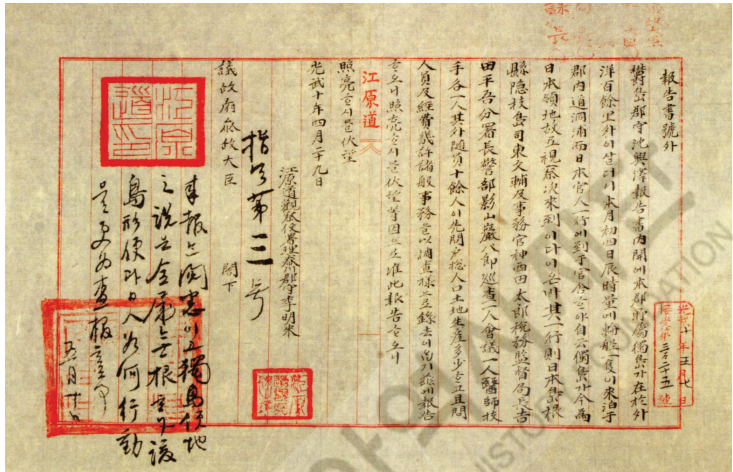 報告書號外
鬱島郡守沈興澤報告書內開에本郡所屬獨島가在於外
洋百餘里外이살더니本月初四日辰時量에輪船一隻이來泊于
郡內道洞浦而日本官人一行에到于官舍ᄒᆞ야自云獨島가今爲
日本領地故로視察次來到이다이온바其一行則日本島根
縣隱岐島司東文輔及事務官神西田太郎稅務監督局長吉
田平吾分署長警部影山巖八郎巡査一人會議一人醫師技
手各一人其外隨員十餘人이先問戶摠人口土地生産多少ᄒᆞ고且問
人員及經費幾許諸般事務를以調査樣으로錄去이ᄋᆞᆸ기玆에報告
ᄒᆞ오니照亮ᄒᆞ시믈伏望等因으로准此報告ᄒᆞ오니
江原道
照亮ᄒᆞ시믈伏望
光武十年四月二十九日
江原道觀察使署理春川郡守李明來
議政府參政大臣 閣下
指令第三号
來報는閱悉이고獨島領地
之說은全屬無根ᄒᆞ나該
島形便과日人如何行動
을更爲査報ᄒᆞᆯ事
五月二十日
光武十年五月七日
接受第三百二十五號
江原道印